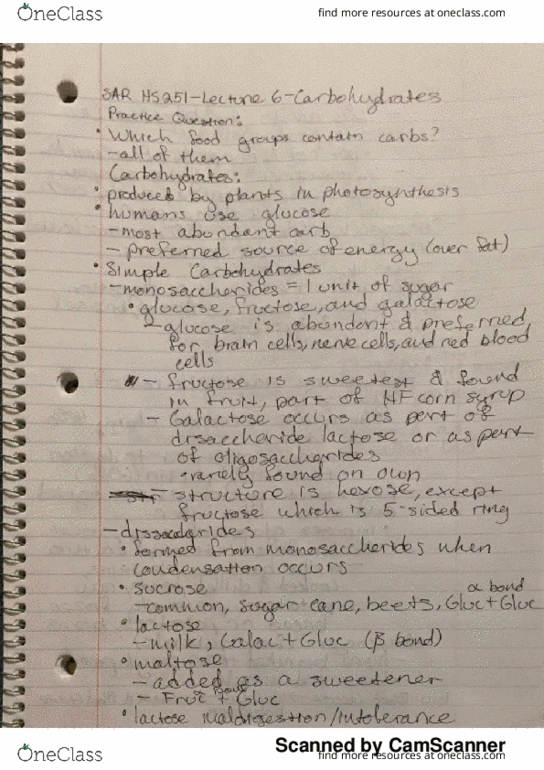 OneClass
find more resources at oneclass.com
SAR HS251-Lecture 6-Carbohydrates
Practice Question:
• Which food groups contain carbs?
-all of them
Carbohydrates:
• produced by plants in photosynthesis
• humans use glucose
-most abundant carb
- preferred source of energy (over fat)
• Simple Carbohydrates
-monosaccharides = 1 unit of sugar
• glucose, fructose, and galactose
-glucose is abundant & preferred
for brain cells, nerve cells, and red blood
cells
- fructose is sweetest & found
in fruit, part of HF corn syrup
- Galactose occurs as part of
disaccharide lactose or as part
of oligosaccharides
• rarely found on own
- structure is hexose, except
fructose which is 5-sided ring
-disaccharides
• formed from monosaccharides when
condensation occurs
• sucrose
α bond
-common, sugar cane, beets, Gluc+Gluc
• lactose
-milk, Galac+Gluc (β bond)
• maltose
-added as a sweetener
- Fruc + Gluc
• lactose maldigestion/intolerance
Scanned by CamScanner
OneClass
find more resources at oneclass.com